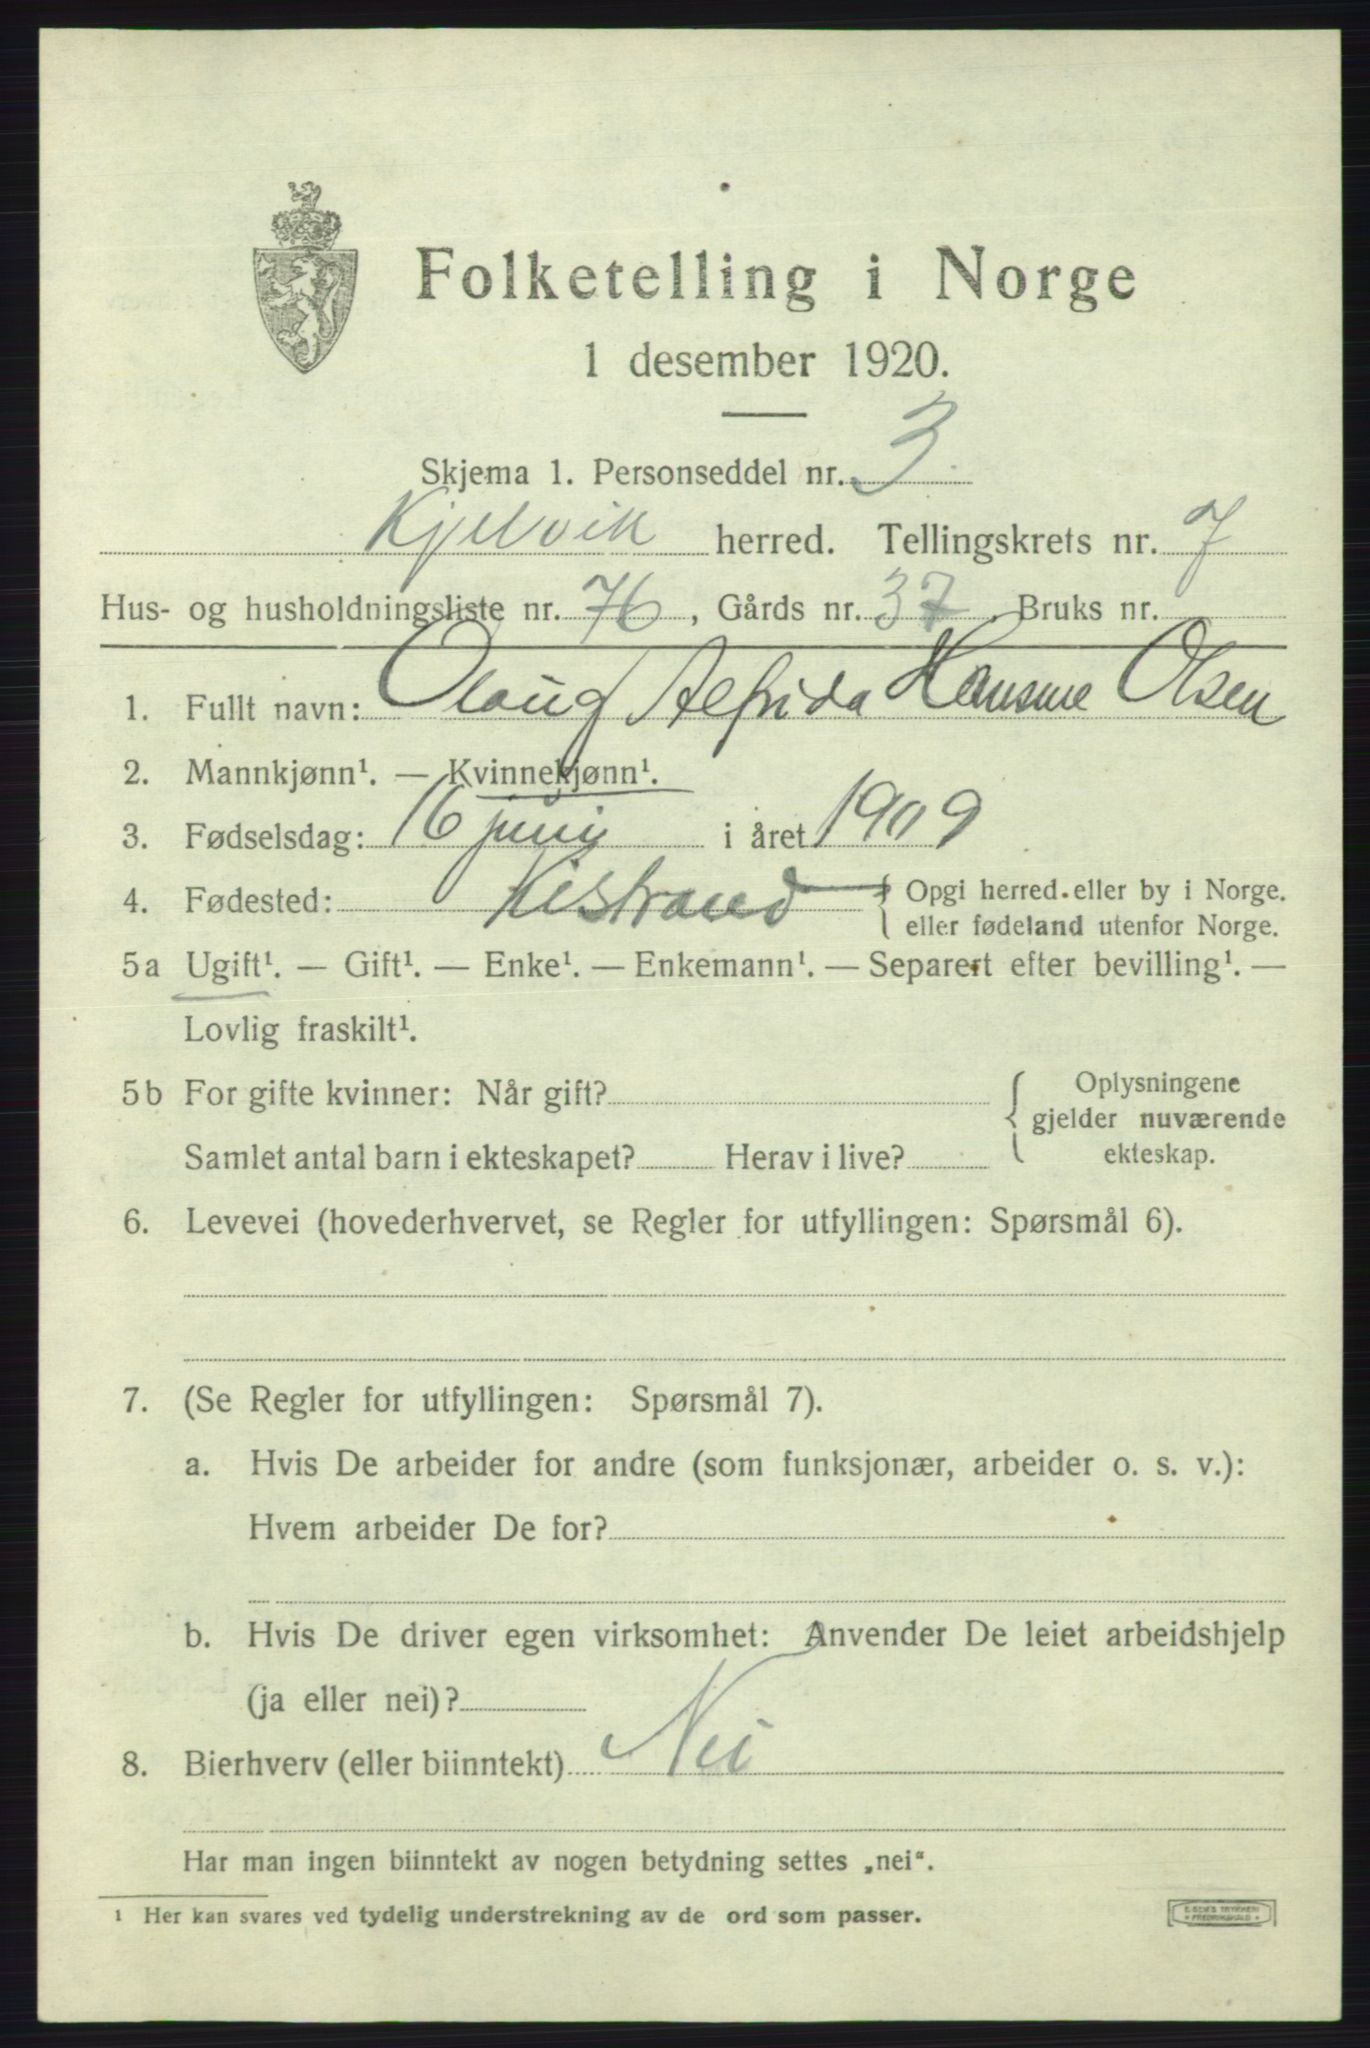 Folketelling i Norge
1 desember 1920.
Skjema 1. Personseddel nr. 3.
Kjelvik herred. Tellingskrets nr. 7
Hus- og husholdningsliste nr. 76, Gårds nr. 37. Bruks nr.
1. Fullt navn: Olaug Alfrida Hansine Olsen
2. Mannkjønn¹. — Kvinnekjønn¹.
3. Fødselsdag: 16 juni i året 1909
4. Fødested: Kistrand { Opgi herred eller by i Norge.
eller fødeland utenfor Norge.
5a Ugift¹. — Gift¹. — Enke¹. — Enkemann¹. — Separert efter bevilling¹. —
Lovlig fraskilt¹.
5b For gifte kvinner: Når gift? { Oplysningene
gjelder nuværende
Samlet antal barn i ekteskapet? Herav i live? ekteskap.
6. Levevei (hovederhvervet, se Regler for utfyllingen: Spørsmål 6).
7. (Se Regler for utfyllingen: Spørsmål 7).
a. Hvis De arbeider for andre (som funksjonær, arbeider o. s. v.):
Hvem arbeider De for?
b. Hvis De driver egen virksomhet: Anvender De leiet arbeidshjelp
(ja eller nei)?
8. Bierhverv (eller biinntekt) Nei
Har man ingen biinntekt av nogen betydning settes „nei".
¹ Her kan svares ved tydelig understrekning av de ord som passer.